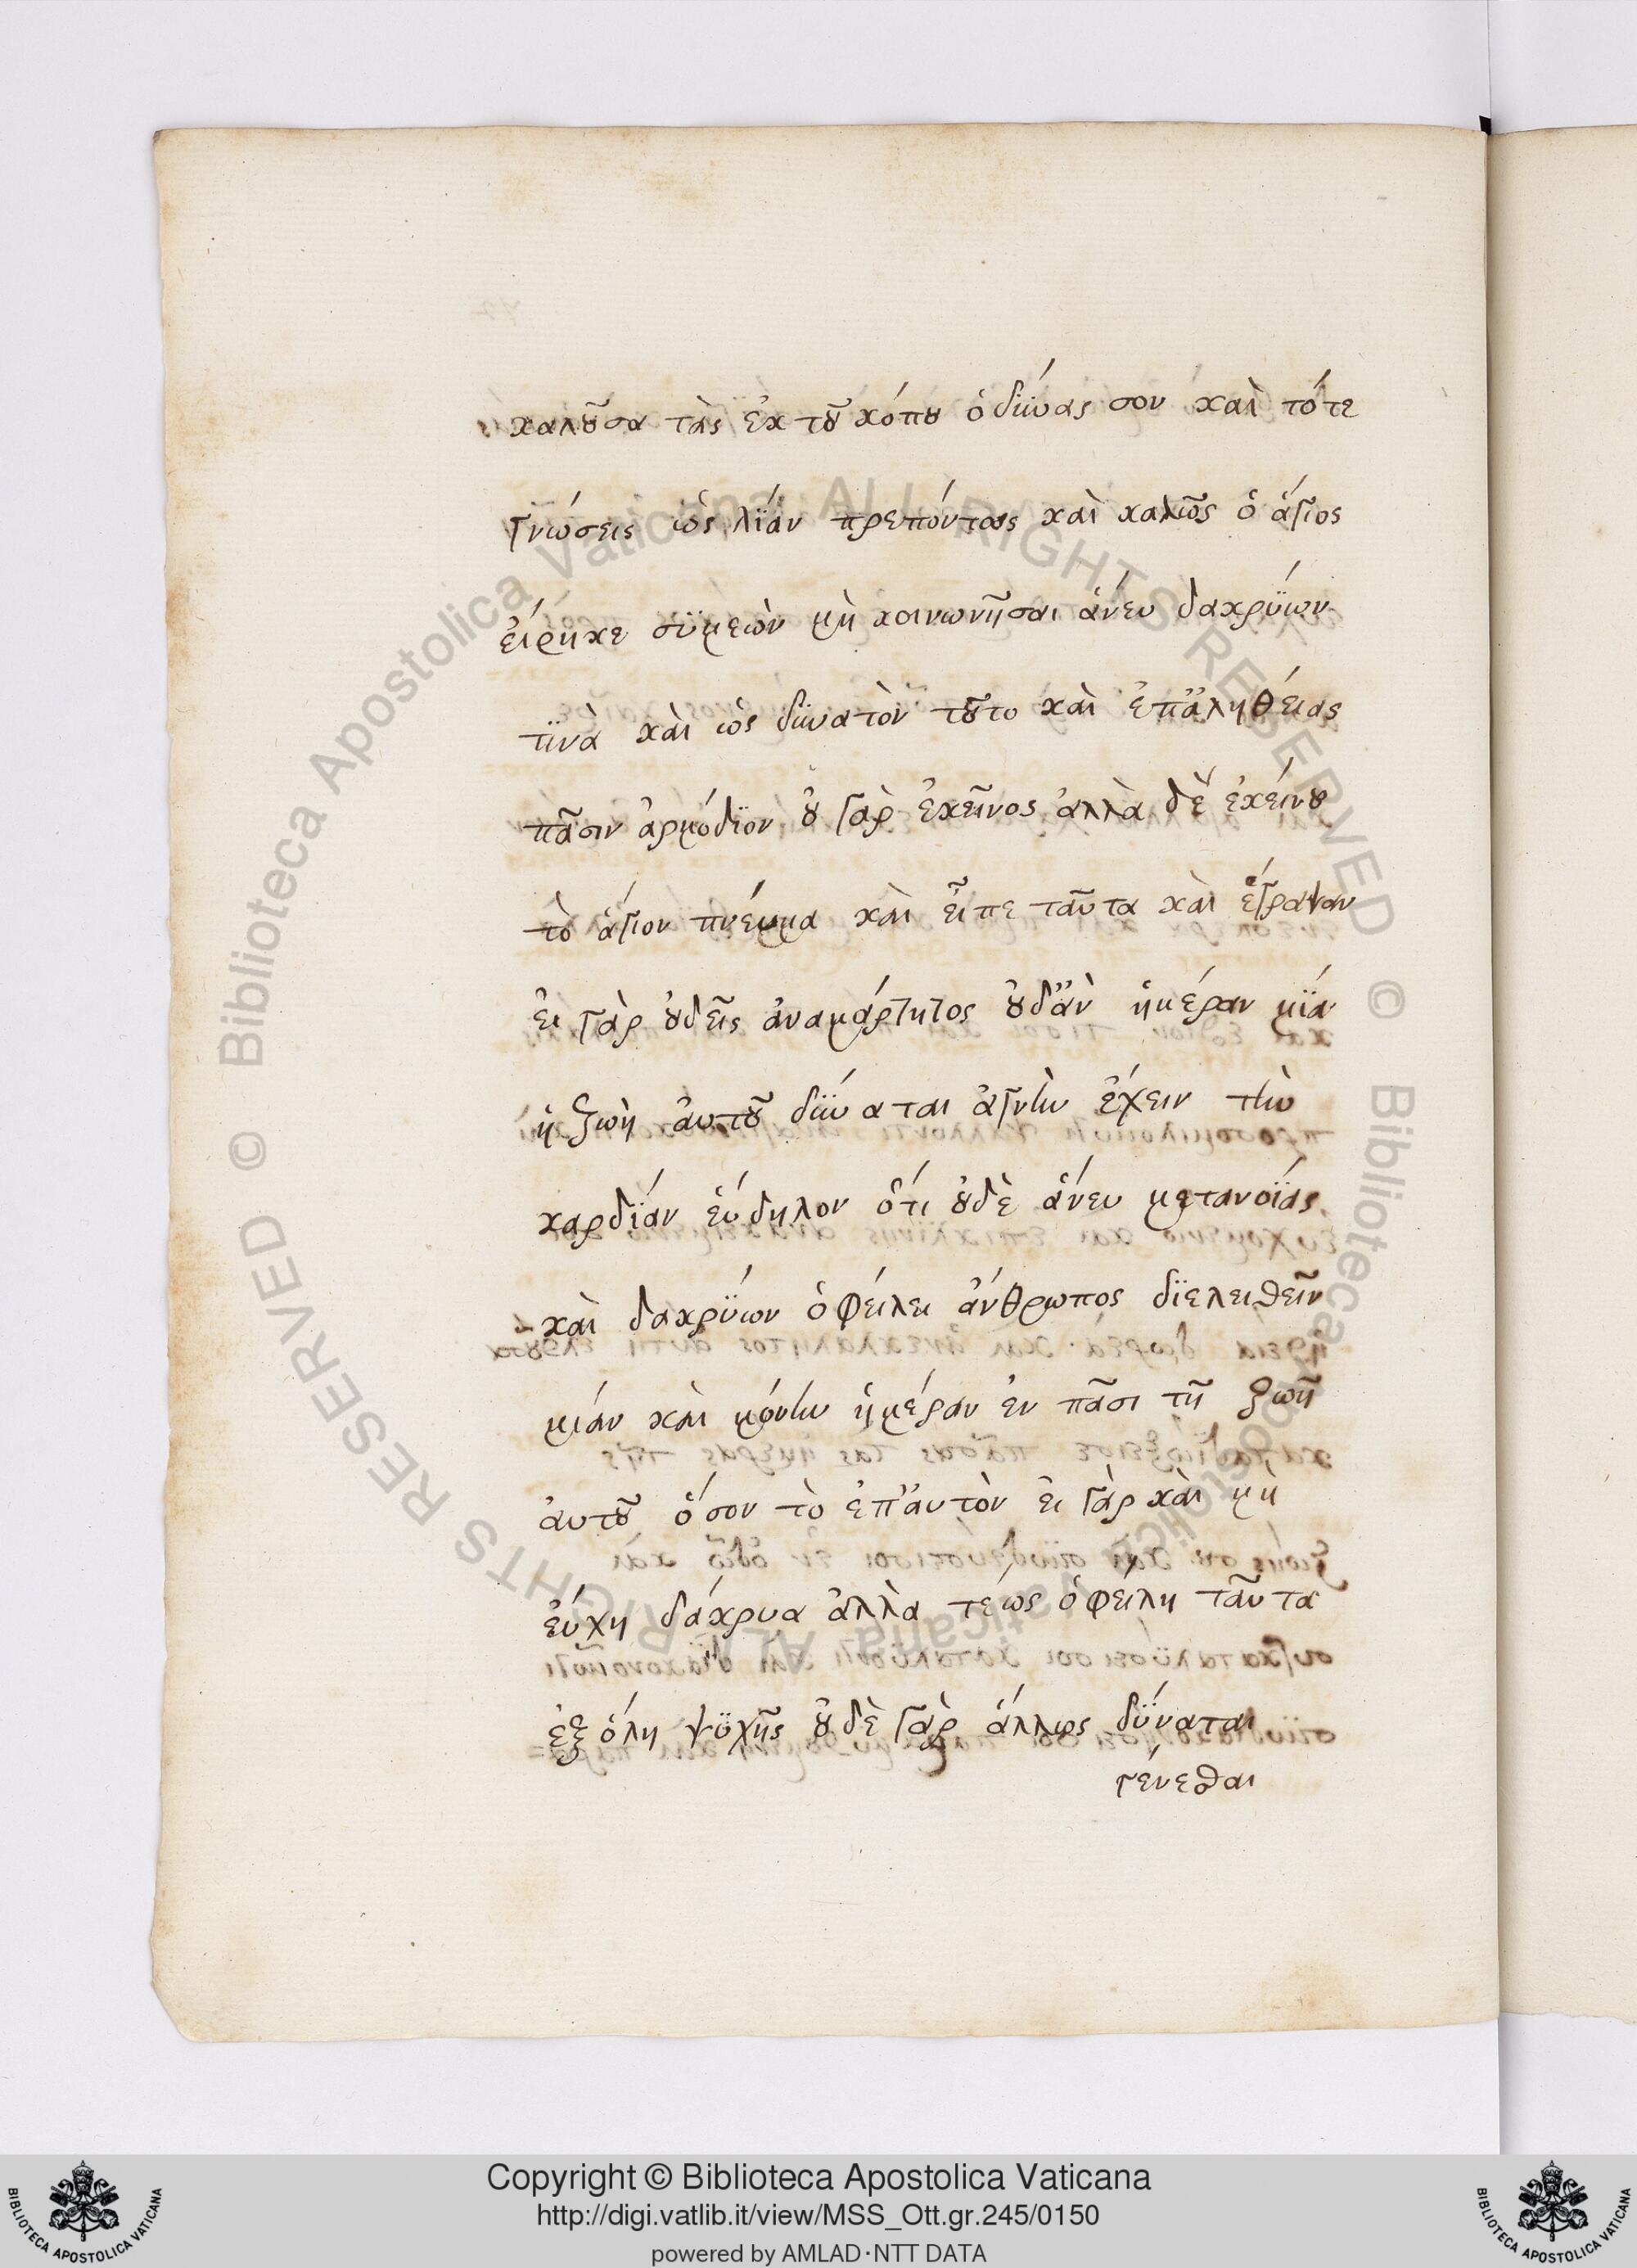 χαλοῦσα τὰς ἐκ τοῦ κόπου ὀδύνας σου καὶ τότε
γνώσεις ὡς λΐαν πρεπόντως καὶ καλῶς ὁ ἅγιος
εἴρηκε συμεὼν μὴ κοινωνῆσαι ἄνευ δακρΰων
τϊνὰ καὶ ὡς δυνατὸν τοῦτο καὶ ἐπ' ἀληθείας
πᾶσιν ἁρμόδϊον οὐ γὰρ ἐκεῖνος ἀλλὰ δἒ ἐκείνου
τὸ ἅγιον πνεύμα καὶ εἶπε ταῦτα καὶ ἔγραψαν
εἰ γὰρ οὐδεῖς ἀναμάρτητος οὐδ' ἂν ἡμέραν μΐαν
ἡ ζωὴ ἀυτοῦ δύναται ἁγνὴν ἔχειν τὴν
καρδΐαν ἔυδηλον ὅτι οὐδὲ ἄνευ μετανοΐας
καὶ δακρΰων ὀφείλει ἄνθρωπος διελειθεῖν
μιάν καὶ μόνην ἡμέραν ἐν πᾶσι τῆ ζωῆ
ἀυτοῦ ὅσον τὸ ἐπ' ἀυτὸν εἰ γὰρ καὶ μὴ
ἔυχη δάκρυα ἀλλὰ τέως ὀφείλη ταῦτα
ἐξ όλη ψϋχῆς οὐδὲ γὰρ ἄλλως δΰναται
γένεσθαι
Copyright © Biblioteca Apostolica Vaticana
http://digi.vatlib.it/view/MSS_Ott.gr.245/0150
powered by AMLAD·NTT DATA
BIBLIOTECA APOSTOLICA VATICANA
BIBLIOTECA APOSTOLICA VATICANA
© Biblioteca Apostolica Vaticana ALL RIGHTS RESERVED
© Biblioteca Apostolica Vaticana ALL RIGHTS RESERVED